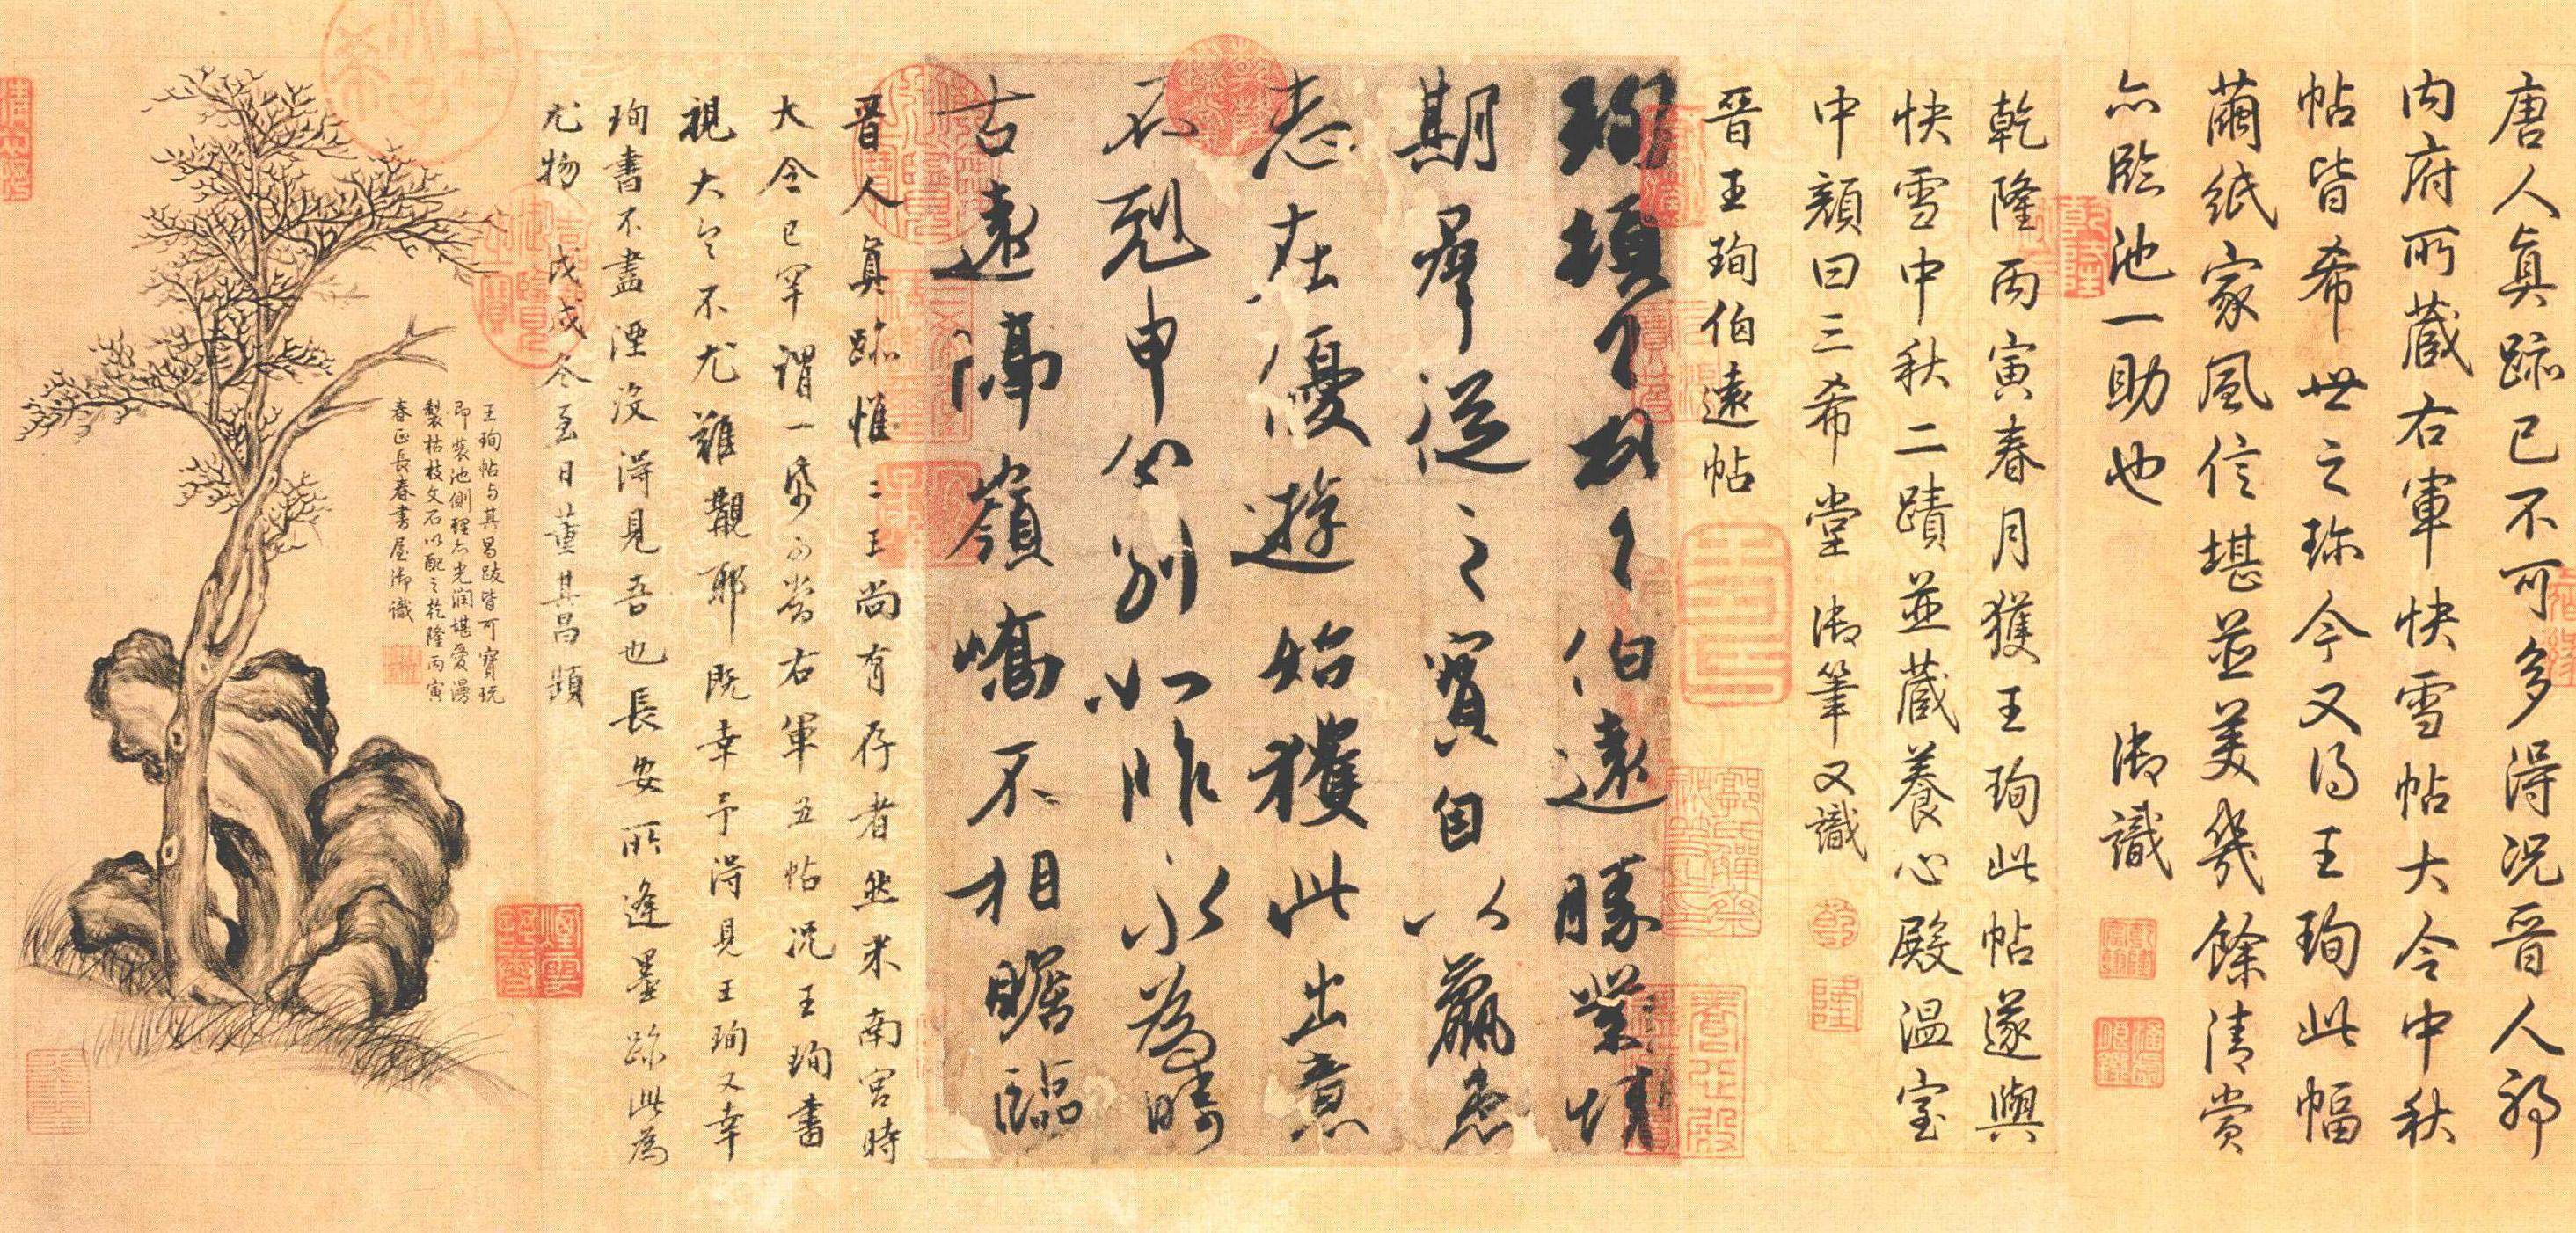 唐人真跡已不可多得況晉人耶
內府所藏右軍快雪帖大令中秋
帖皆希世之珍今又得王珣此幅
繭紙家風信堪並美幾餘清賞
亦臨池一助也 御識
乾隆丙寅春月獲王珣此帖遂與
快雪中秋二蹟並藏養心殿溫室
中顏曰三希堂御筆又識
乾 隆
晉王珣伯遠帖
珣頓首頓首伯遠勝業情
期群從之寶自以羸患
志在優遊始獲此出意
不剋申分別如昨永為疇
古遠隔嶺嶠不相瞻臨
晉人真跡惟二王尚有存者然米南宮時
大令已罕謂一紙可當右軍五帖況王珣書
視大令不尤難覯耶既幸予得見王珣又幸
珣書不盡湮沒得見吾也長安所逢墨跡此為
尤物 戊戌冬至日董其昌題
王珣帖与其昌跋皆可寶玩
即裝池側理亦光潤堪愛漫
製枯枝文石以配之乾隆丙寅
春正長春書屋御識